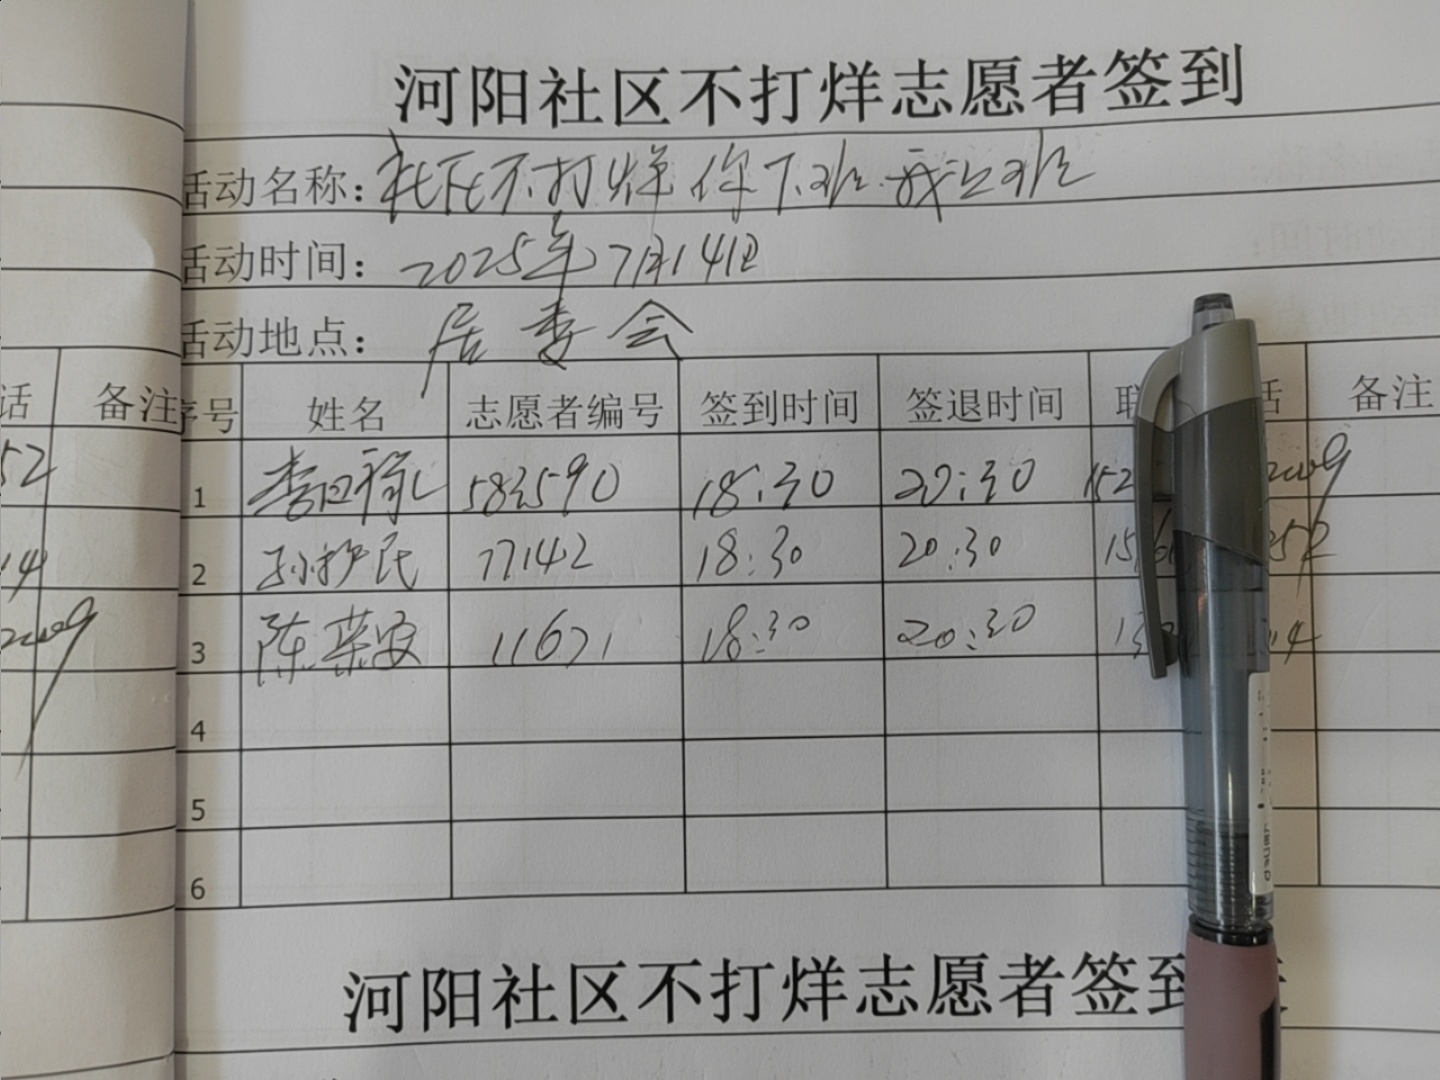 河阳社区不打烊志愿者签到
活动名称：社区不打烊 你下班 我上班
活动时间：2025年7月14日
活动地点：居委会
话 备注 序号 姓名 志愿者编号 签到时间 签退时间 联 话 备注
52 1 583590 18:30 20:30 152 2009
14 2 孙护民 77142 18:30 20:30 252
2009 3 陈荣安 11671 18:30 20:30 14
4
5
6
河阳社区不打烊志愿者签到